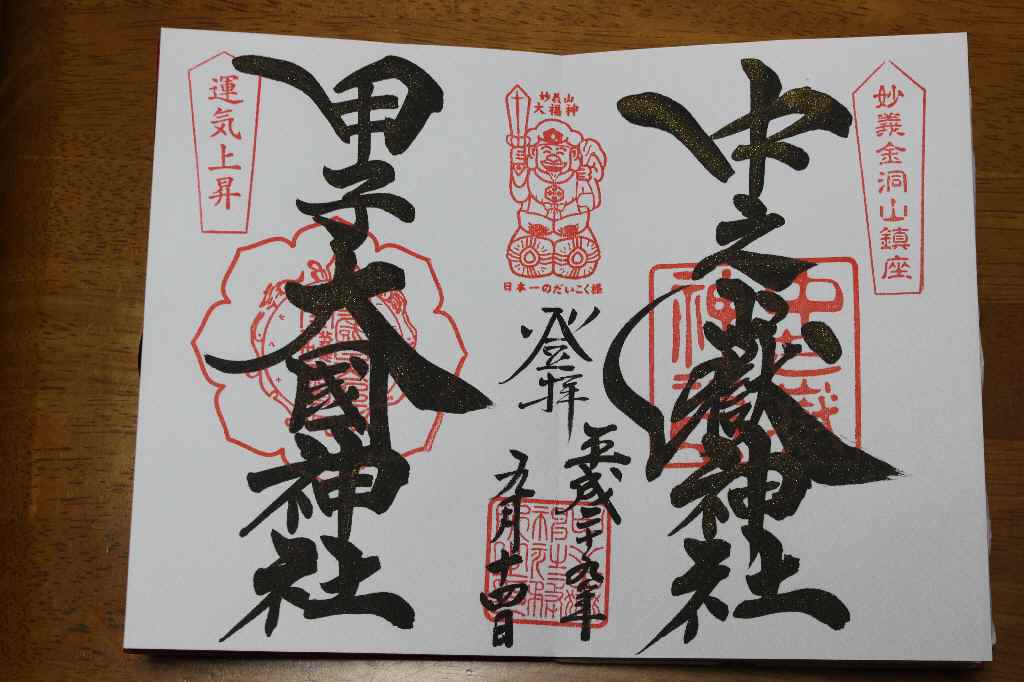 妙義金洞山鎮座
中之嶽神社
妙義山
大福神
日本一のだいこく様
登拝
平成二十九年
九月十四日
甲子大國神社
運気上昇